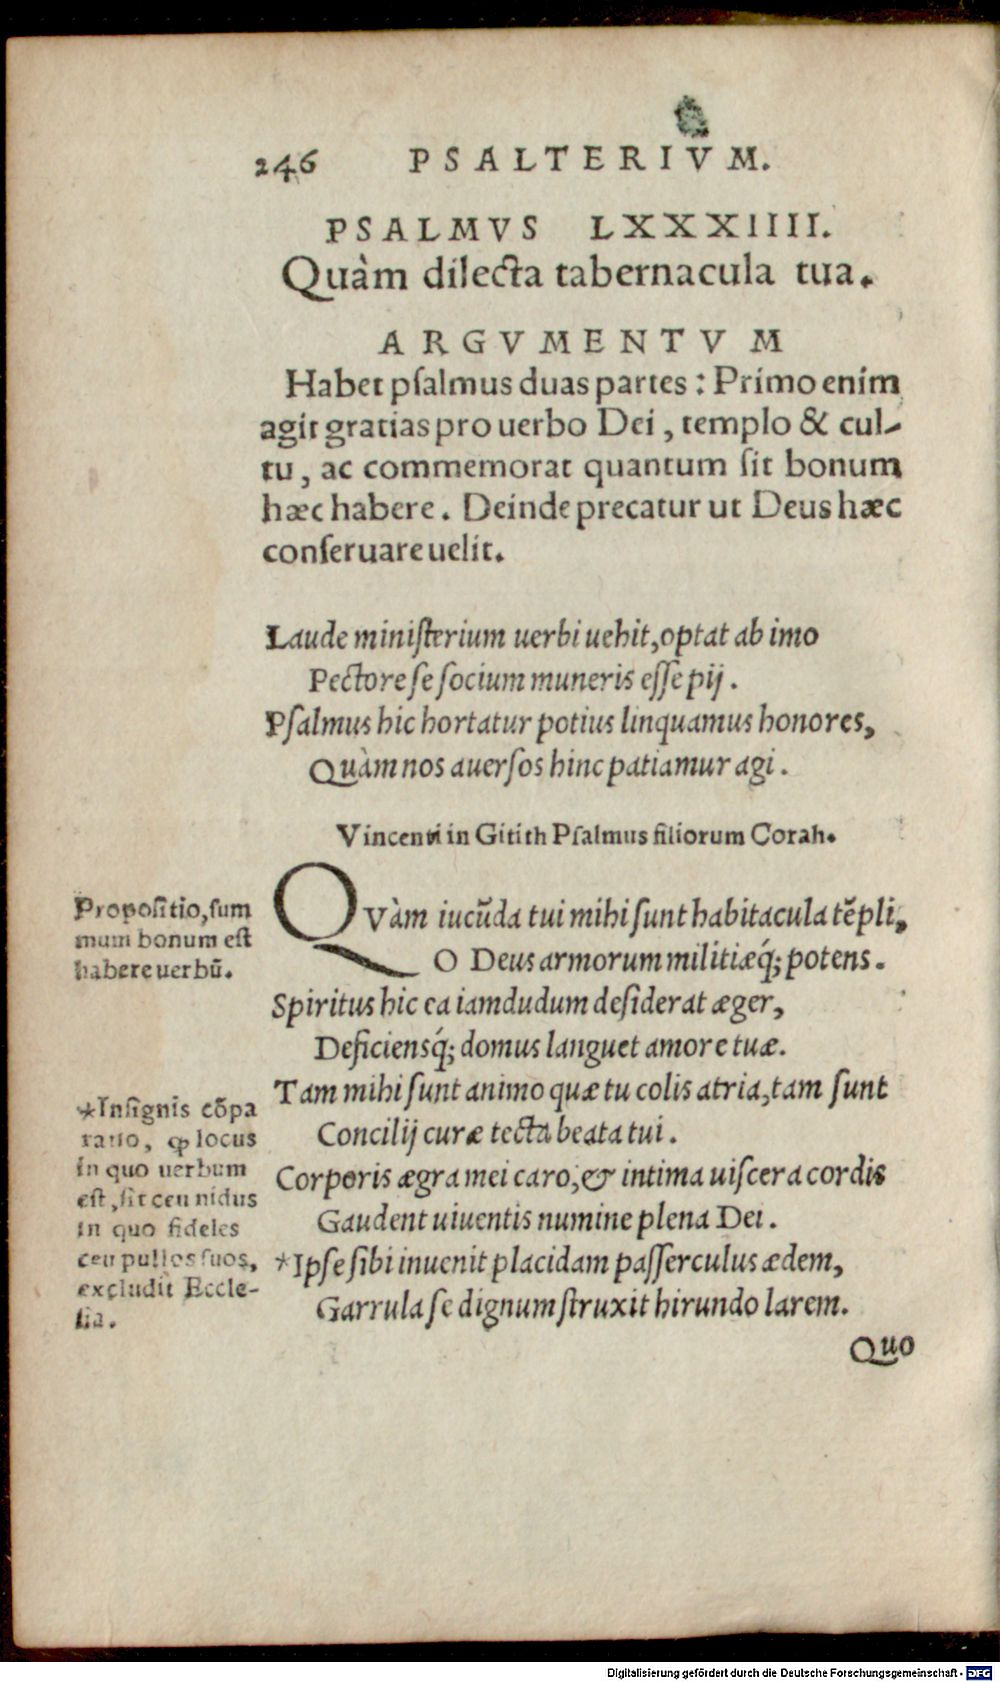 246 PSALTERIVM.
PSALMVS LXXXIIII.
Quàm dilecta tabernacula tua.
ARGVMENTVM
Habet psalmus duas partes: Primo enim
agit gratias pro uerbo Dei, templo & cul-
tu, ac commemorat quantum sit bonum
hæc habere. Deinde precatur ut Deus hæc
conseruare uelit.
Laude ministerium uerbi uehit, optat ab imo
Pectore se socium muneris esse pij.
Psalmus hic hortatur potius linquamus honores,
Quàm nos auersos hinc patiamur agi.
Vincenti in Gitith Psalmus filiorum Corah.
Propositio, sum
mum bonum est
habere uerbū.
QVàm iucūda tui mihi sunt habitacula tēpli,
O Deus armorum militiæq́; potens.
Spiritus hic ea iamdudum desiderat æger,
Deficiensq́; domus languet amore tuæ.
Tam mihi sunt animo quæ tu colis atria, tam sunt
Concilij curæ tecta beata tui.
Corporis ægra mei caro, & intima uiscera cordis
Gaudent uiuentis numine plena Dei.
*Ipse sibi inuenit placidam passerculus ædem,
Garrula se dignum struxit hirundo larem.
*Insignis cōpa
ratio, ꝙ locus
in quo uerbum
est, sit ceu nidus
in quo fideles
ceu pullos suos,
excludit Eccle-
sia.
Quo
Digitalisierung gefördert durch die Deutsche Forschungsgemeinschaft - DFG